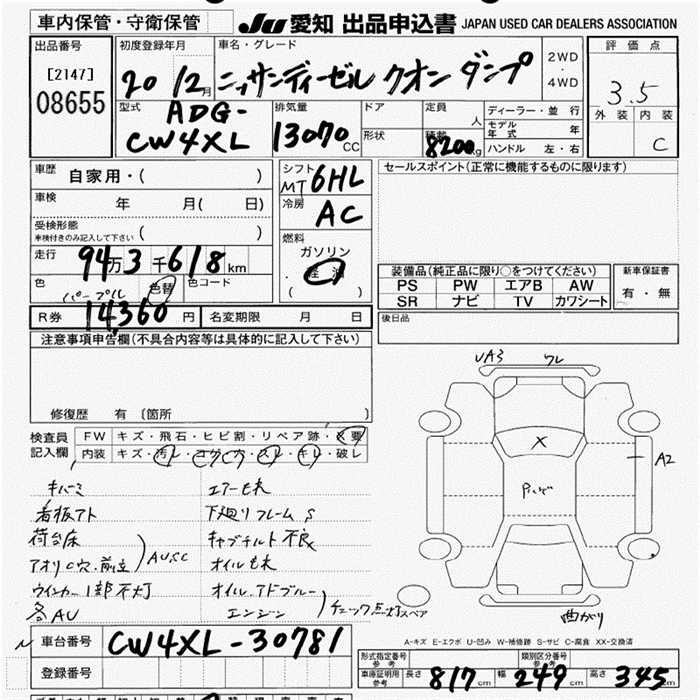 車内保管・守衛保管
JU 愛知 出品申込書 JAPAN USED CAR DEALERS ASSOCIATION
出品番号
[2147]
08655
初度登録年月
20 12月
車名・グレード
ニッサンディーゼル クオン ダンプ
2WD
・
4WD
評価点
3.5
外装 内装
C
型式
ADG-
CW4XL
排気量
13070CC
ドア
形状
定員
人
積載
8200kg
ディーラー・並行
モデル年式 年
ハンドル 左・右
車歴 自家用・( )
車検 年 月( 日)
受検形態
車検付きのみ記入して下さい ( )
走行 94万3千618km
色 パープル 色替 色コード
R券 14,360円 名変期限 月 日
シフト
MT 6HL
冷房
AC
燃料
ガソリン
・軽油
( )
セールスポイント(正常に機能するものに限ります)
装備品(純正品に限り○をつけてください)
PS PW エアB AW
SR ナビ TV カワシート
新車保証書
有・無
後日品
注意事項申告欄(不具合内容等は具体的に記入して下さい)
修復歴 有 〔箇所 〕
検査員
記入欄
FW キズ・飛石・ヒビ割・リペア跡・X要
内装 キズ・汚レ・コゲ穴・スレ・キレ・破レ
キバミ
看板アト
荷台床
アオリ穴.前立
AU,SC
ウインカー1部不灯
各AU
エアーモレ
下廻りフレームS
キャブチルト不良
オイルモレ
オイル.アドブルー
エンジン
チェック点灯
UA3
ワレ
X
A2
曲がり
スペア
A-キズ E-エクボ U-凹み W-補修跡 S-サビ C-腐食 XX-交換済
車台番号 CW4XL-30781
登録番号
形式指定番号
参考
類別区分番号
参考
車庫証明用
参考
長さ 817cm 幅 249cm 高さ 345cm